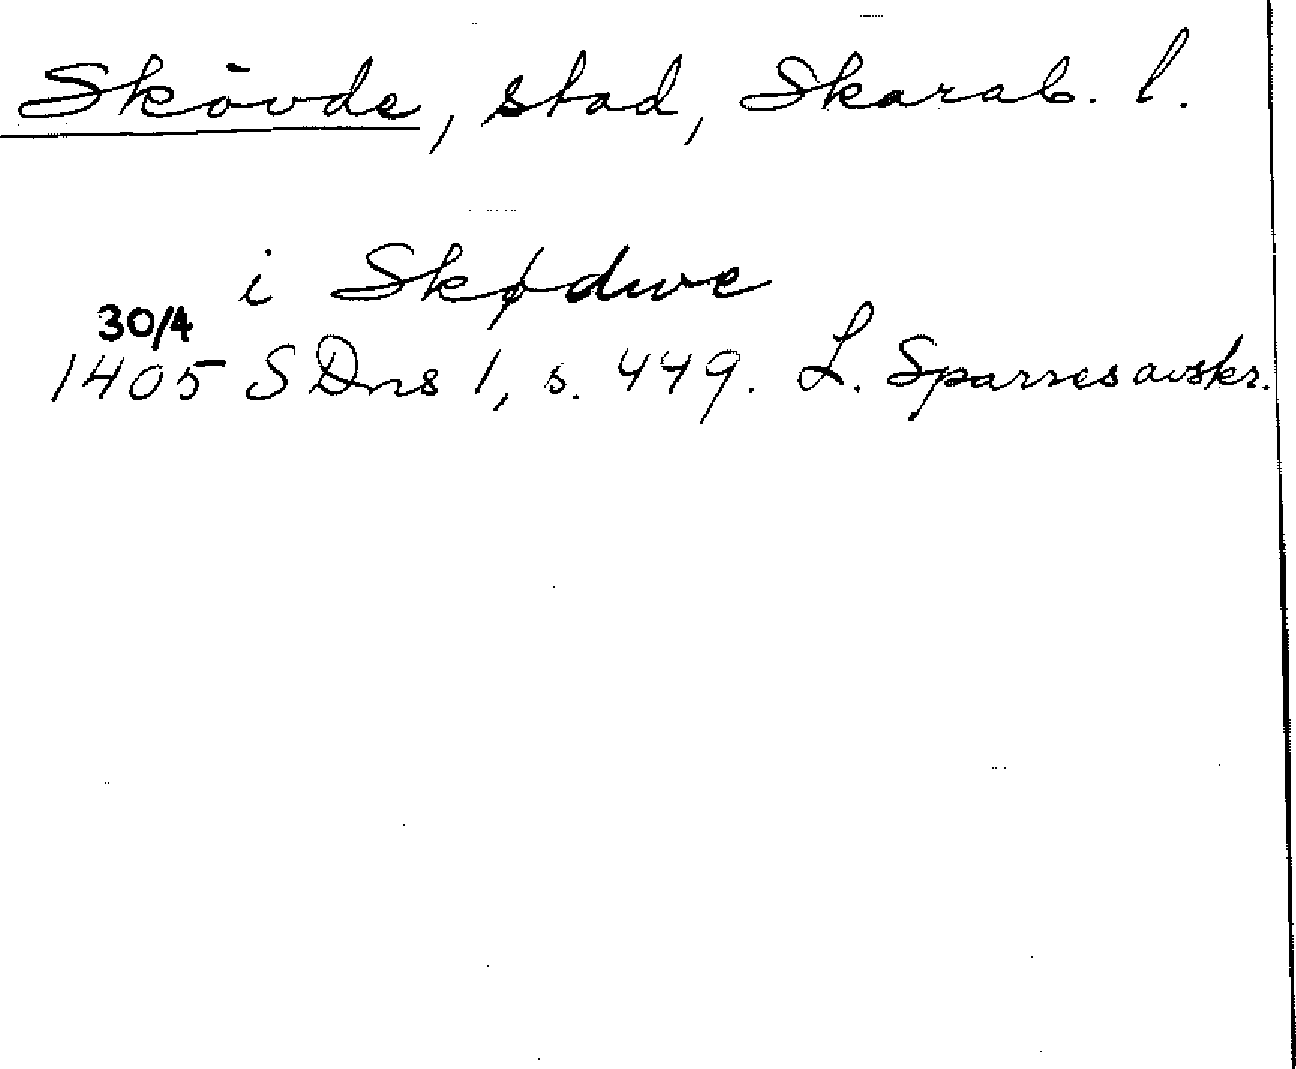 Skövde, stad, Skarab. l.
i Skødwe
30/4
1405 SDns 1, s. 449. L. Sparres avskr.